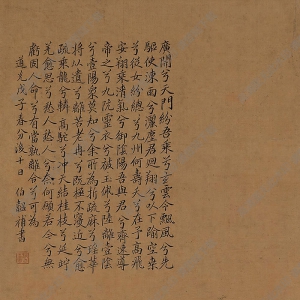 廣開兮天門紛吾乘兮玄雲令飄風兮先
驅使涷雨兮灑塵君迴翔兮以下踰空桒
兮從女紛總總兮九州何壽夭兮在予高飛兮
安翔乘清氣兮御陰陽吾與君兮齊速導
帝之兮九阬靈衣兮被被玉佩兮陸離壹陰
兮壹陽衆莫知兮余所為折疏麻兮瑤華
將以遺兮離居老冉冉兮既極不寖近兮愈
疏乘龍兮轔轔高駝兮沖天結桂枝兮延佇
羌愈思兮愁人愁人兮奈何願若今兮無
虧固人命兮有當孰離合兮可為
道光戊子春分後十日 伯韶補書